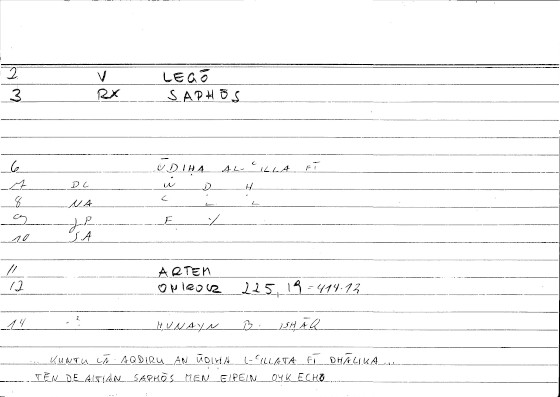 2 V LEGŌ
3 RX SAPHŌS
6 ŪḌIḤA AL-ʿILLA FĪ
7 DC W Ḍ Ḥ
8 NA ʿ L L
9 JP F Y
10 SA
11 ARTEM
12 ONIROCR 225,19=414.12
14 -² ḤUNAYN B. ISḤĀQ
... KUNTU LĀ AQDIRU AN ŪḌIḤA L-ʿILLATA FĪ DHĀLIKA ...
TĒN DE AITIAN SAPHŌS MEN EIPEIN OYK ECHŌ